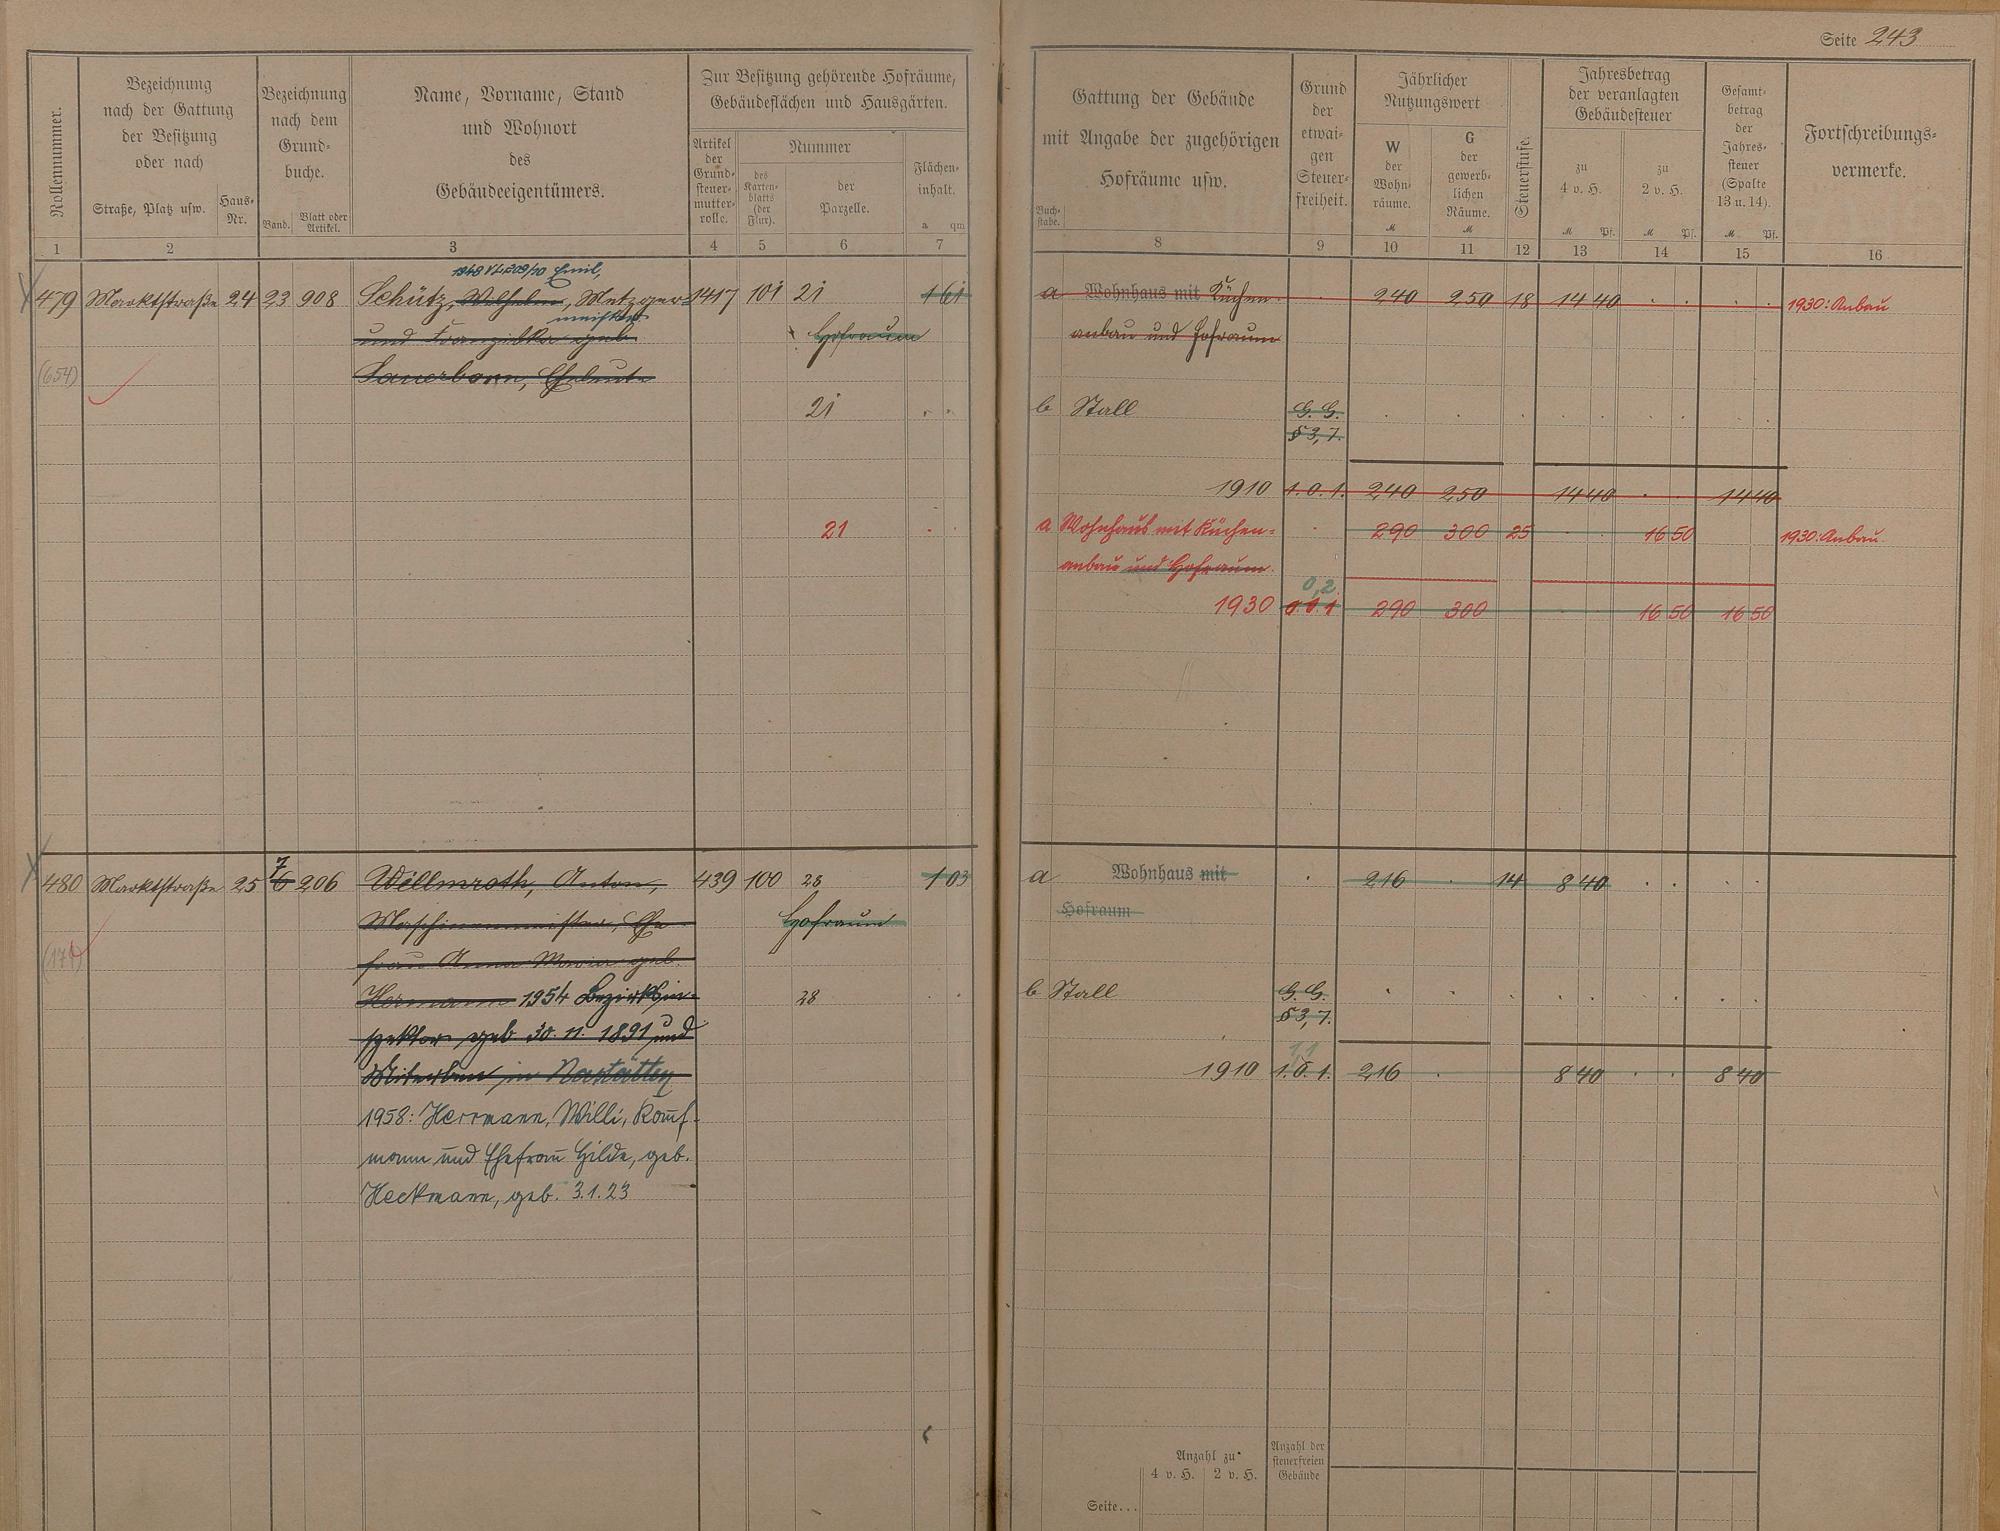 Seite 243
Rollennummer.
Bezeichnung
nach der Gattung
der Besitzung
oder nach
Straße, Platz usw.
Haus-
Nr.
Bezeichnung
nach dem
Grund-
buche.
Band.
Blatt oder
Artikel.
Name, Vorname, Stand
und Wohnort
des
Gebäudeeigentümers.
Zur Besitzung gehörende Hofräume,
Gebäudeflächen und Hausgärten.
Artikel
der
Grund-
steuer-
mutter-
rolle.
Nummer
des
Karten-
blatts
(der
Flur).
der
Parzelle.
Flächen-
inhalt.
a qm
Buch-
stabe.
Gattung der Gebäude
mit Angabe der zugehörigen
Hofräume usw.
Grund
der
etwai-
gen
Steuer-
freiheit.
Jährlicher
Nutzungswert
W
der
Wohn-
räume.
M
G
der
gewerb-
lichen
Räume.
M
Steuerstufe.
Jahresbetrag
der veranlagten
Gebäudesteuer
zu
4 v. H.
M Pf.
zu
2 v. H.
M Pf.
Gesamt-
betrag
der
Jahres-
steuer
(Spalte
13 u. 14).
M Pf.
Fortschreibungs-
vermerke.
1 2 3 4 5 6 7 8 9 10 11 12 13 14 15 16
Emil,
479 Marktstraße 24 23 908 Schütz, Wilhelm, Metzger- 1417 101 21 1 61
meister
und Franziska geb.
Hofraum
(654)
Sauerborn, Eheleute
21
a Wohnhaus mit Küchen- 240 250 18 14 40 1930: Anbau
anbau und Hofraum
b Stall G. G.
§ 3, 7.
1910 1. 0. 1. 240 250 14 40 14 40
21
a Wohnhaus mit Küchen- 290 300 25 16 50 1930: Anbau
anbau und Hofraum.
0,2
1930 1. 0. 1 290 300 16 50 16 50
7
480 Marktstraße 25 6 206 Willmroth, Anton, 439 100 28 1 03
Maschinenmeister, Ehe-
Hofraum
frau Anna Maria geb.
Hermann 1954 Bezirksin-
28
spektor geb 30. 11. 1891 und
Miterben in Nastätten
1958: Herrmann, Willi, Kauf-
mann und Ehefrau Hilde, geb.
Heckmann, geb. 3.1.23
a Wohnhaus mit 216 14 8 40
Hofraum
b Stall G. G.
§ 3, 7.
1,1
1910 1. 0. 1. 216 8 40 8 40
Anzahl zu
4 v. H. 2 v. H.
Anzahl der
steuerfreien
Gebäude
Seite...